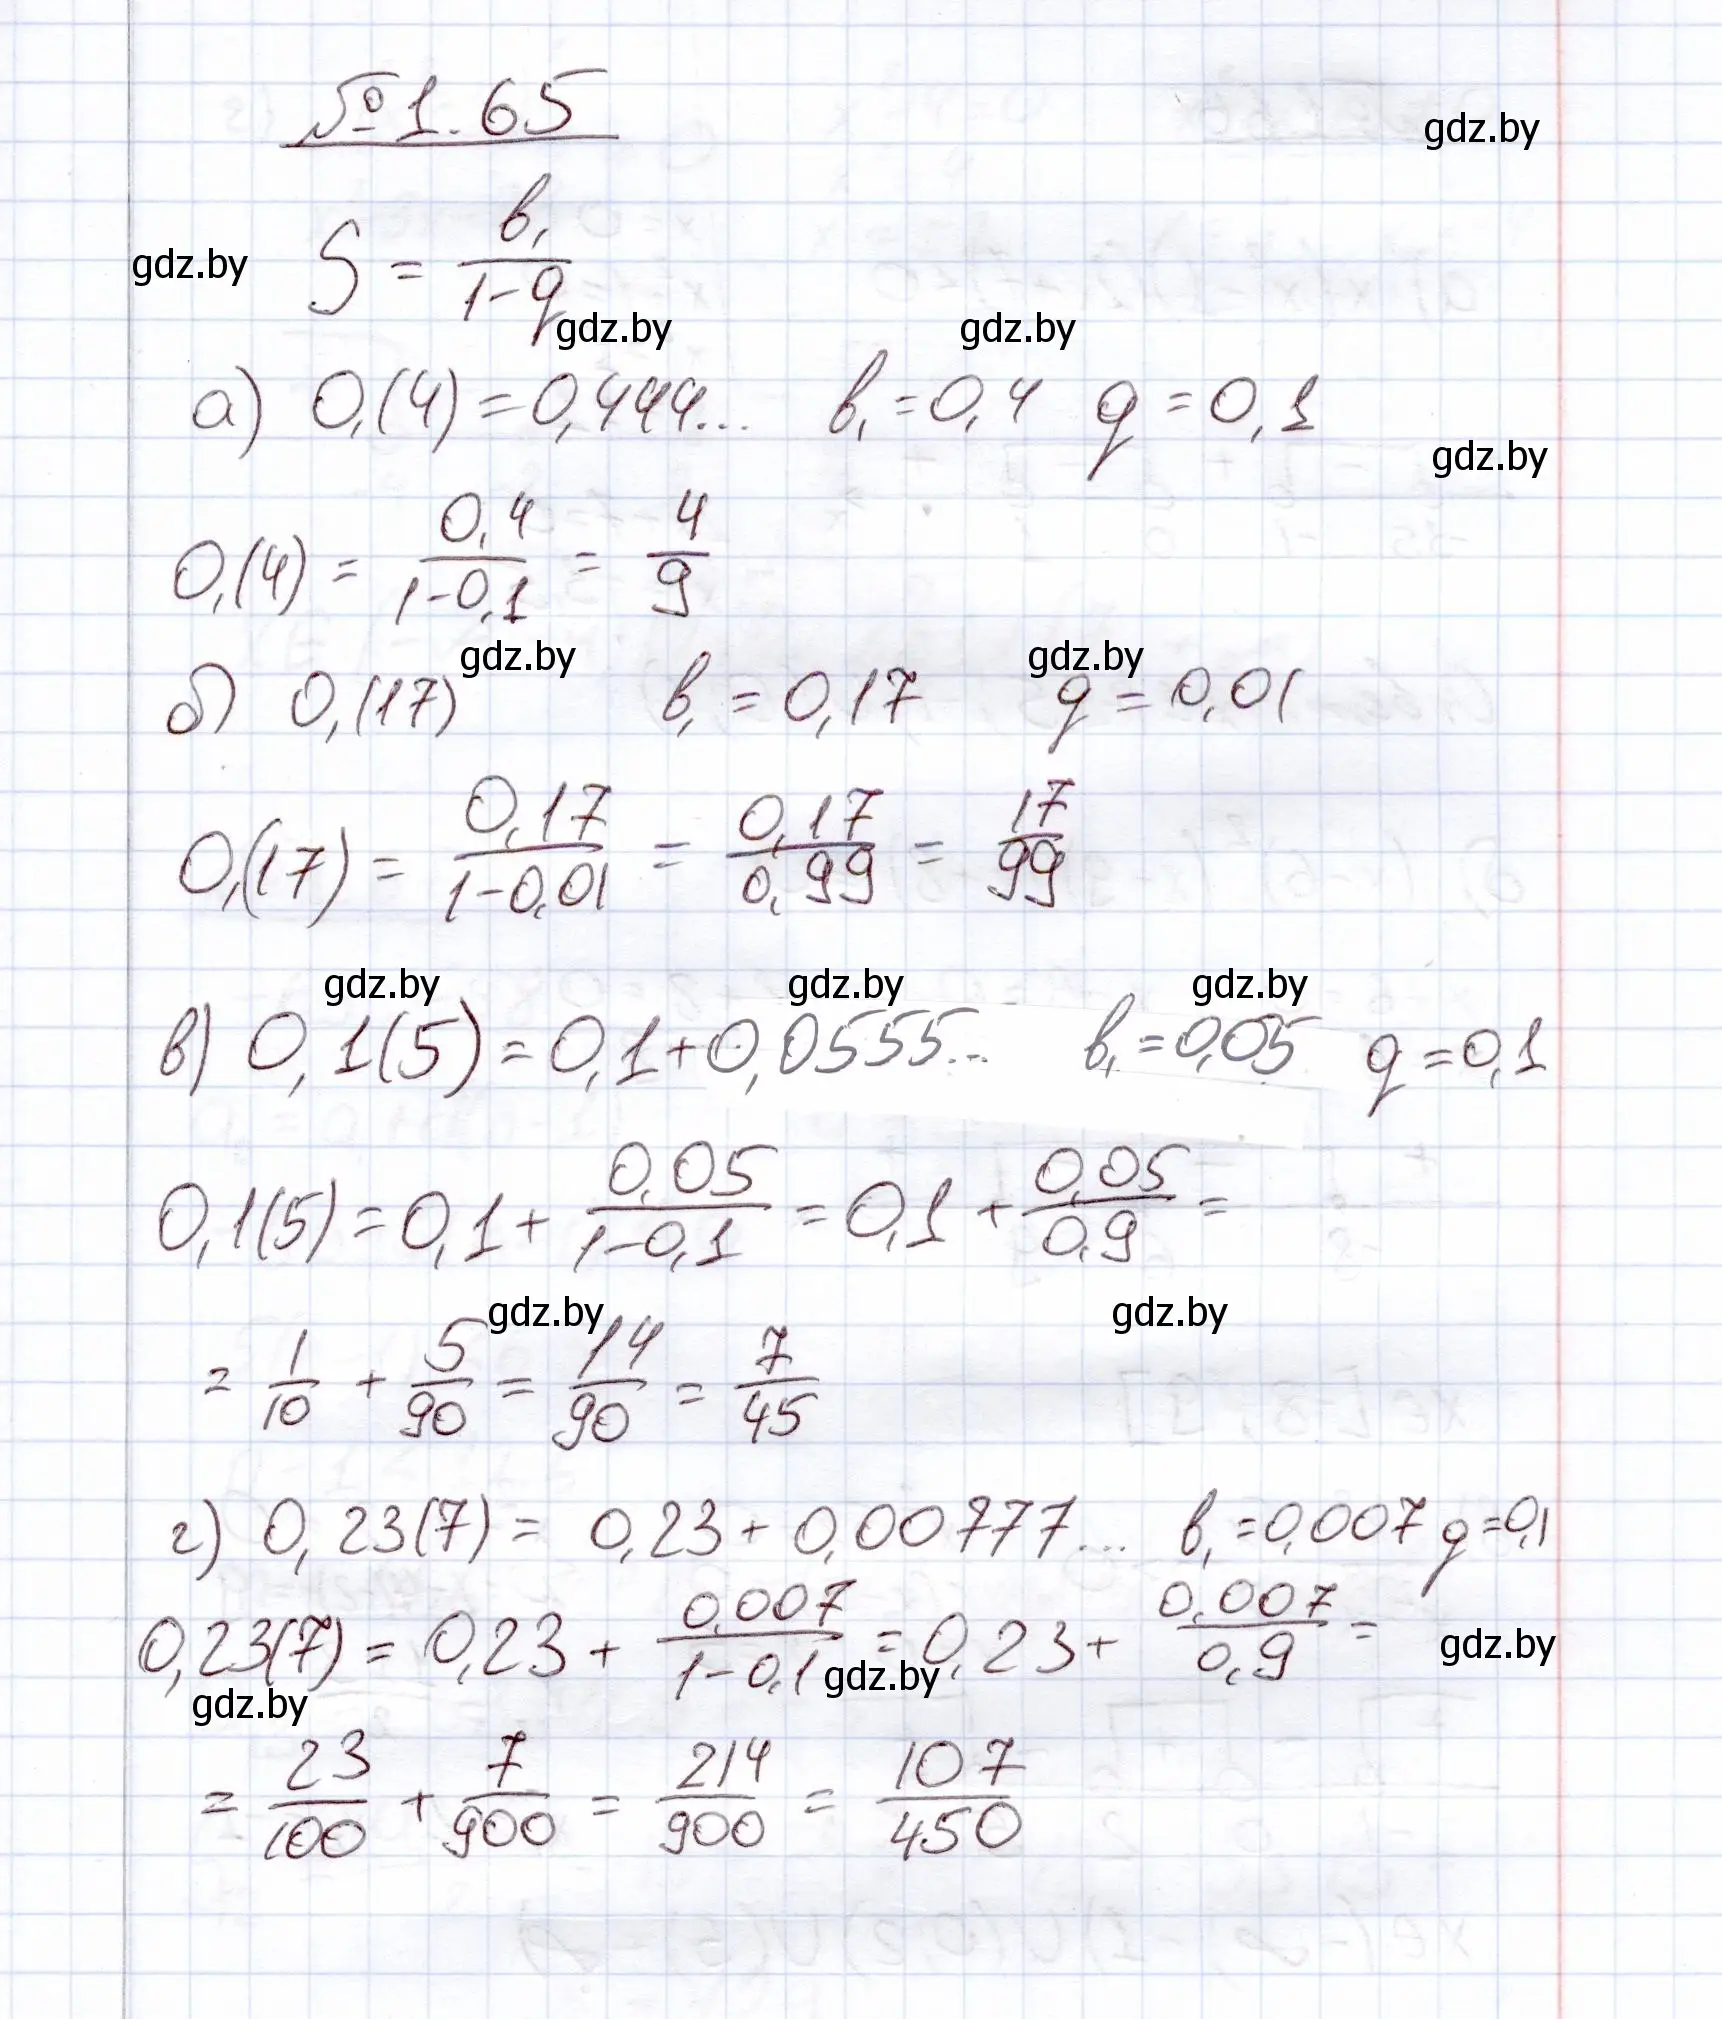 № 1.65
gdz.by
S = b₁/(1-q)
gdz.by
gdz.by gdz.by
а) 0,(4) = 0,444... b₁ = 0,4 q = 0,1
gdz.by
0,(4) = 0,4/(1-0,1) = 4/9
gdz.by gdz.by
б) 0,(17) b₁ = 0,17 q = 0,01
0,(17) = 0,17/(1-0,01) = 0,17/0,99 = 17/99
gdz.by gdz.by gdz.by
в) 0,1(5) = 0,1 + 0,0555... b₁ = 0,05 q = 0,1
0,1(5) = 0,1 + 0,05/(1-0,1) = 0,1 + 0,05/0,9 =
gdz.by gdz.by
= 1/10 + 5/90 = 14/90 = 7/45
г) 0,23(7) = 0,23 + 0,00777... b₁ = 0,007 q = 0,1
0,23(7) = 0,23 + 0,007/(1-0,1) = 0,23 + 0,007/0,9 =
gdz.by
gdz.by
gdz.by
= 23/100 + 7/900 = 214/900 = 107/450